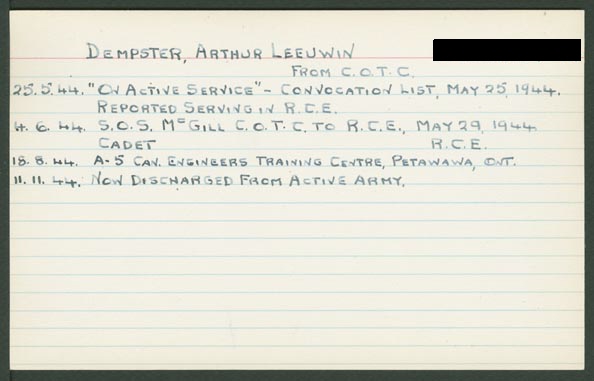 DEMPSTER, ARTHUR LEEUWIN
FROM C.O.T.C.
25.5.44. "ON ACTIVE SERVICE" - CONVOCATION LIST, MAY 25, 1944.
REPORTED SERVING IN R.C.E.
4.6.44. S.O.S. McGILL C.O.T.C. TO R.C.E., MAY 29, 1944
CADET R.C.E.
18.8.44. A-5 CAN. ENGINEERS TRAINING CENTRE, PETAWAWA, ONT.
11.11.44. NOW DISCHARGED FROM ACTIVE ARMY.